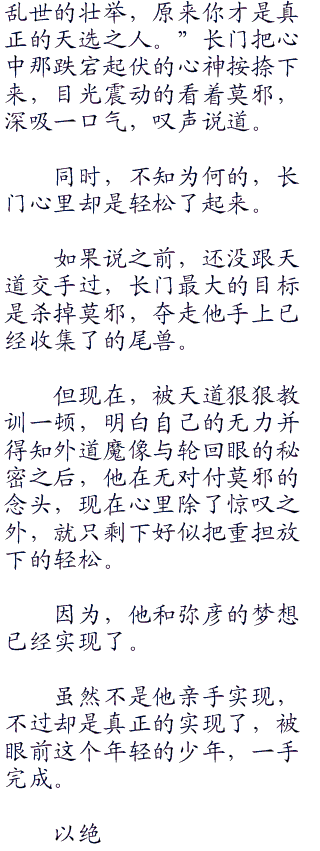 乱世的壮举，原来你才是真
正的天选之人。”长门把心
中那跌宕起伏的心神按捺下
来，目光震动的看着莫邪，
深吸一口气，叹声说道。
同时，不知为何的，长
门心里却是轻松了起来。
如果说之前，还没跟天
道交手过，长门最大的目标
是杀掉莫邪，夺走他手上已
经收集了的尾兽。
但现在，被天道狠狠教
训一顿，明白自己的无力并
得知外道魔像与轮回眼的秘
密之后，他在无对付莫邪的
念头，现在心里除了惊叹之
外，就只剩下好似把重担放
下的轻松。
因为，他和弥彦的梦想
已经实现了。
虽然不是他亲手实现，
不过却是真正的实现了，被
眼前这个年轻的少年，一手
完成。
以绝